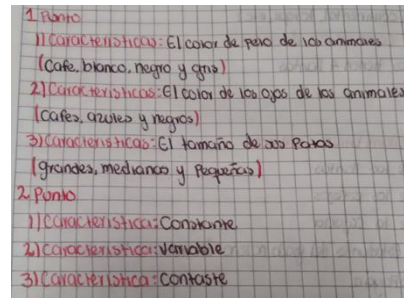 1 Punto
1) Caracteristicas: El color de pelo de los animales
(cafe, blanco, negro y gris)
2) Caracteristicas: El color de los ojos de los animales
(cafes, azules y negros)
3) Caracteristicas: El tamaño de las Patas
(grandes, medianas y Pequeñas)
2 Punto
1) Caracteristica: Constante
2) Caracteristica: Variable
3) Caracteristica: Contaste